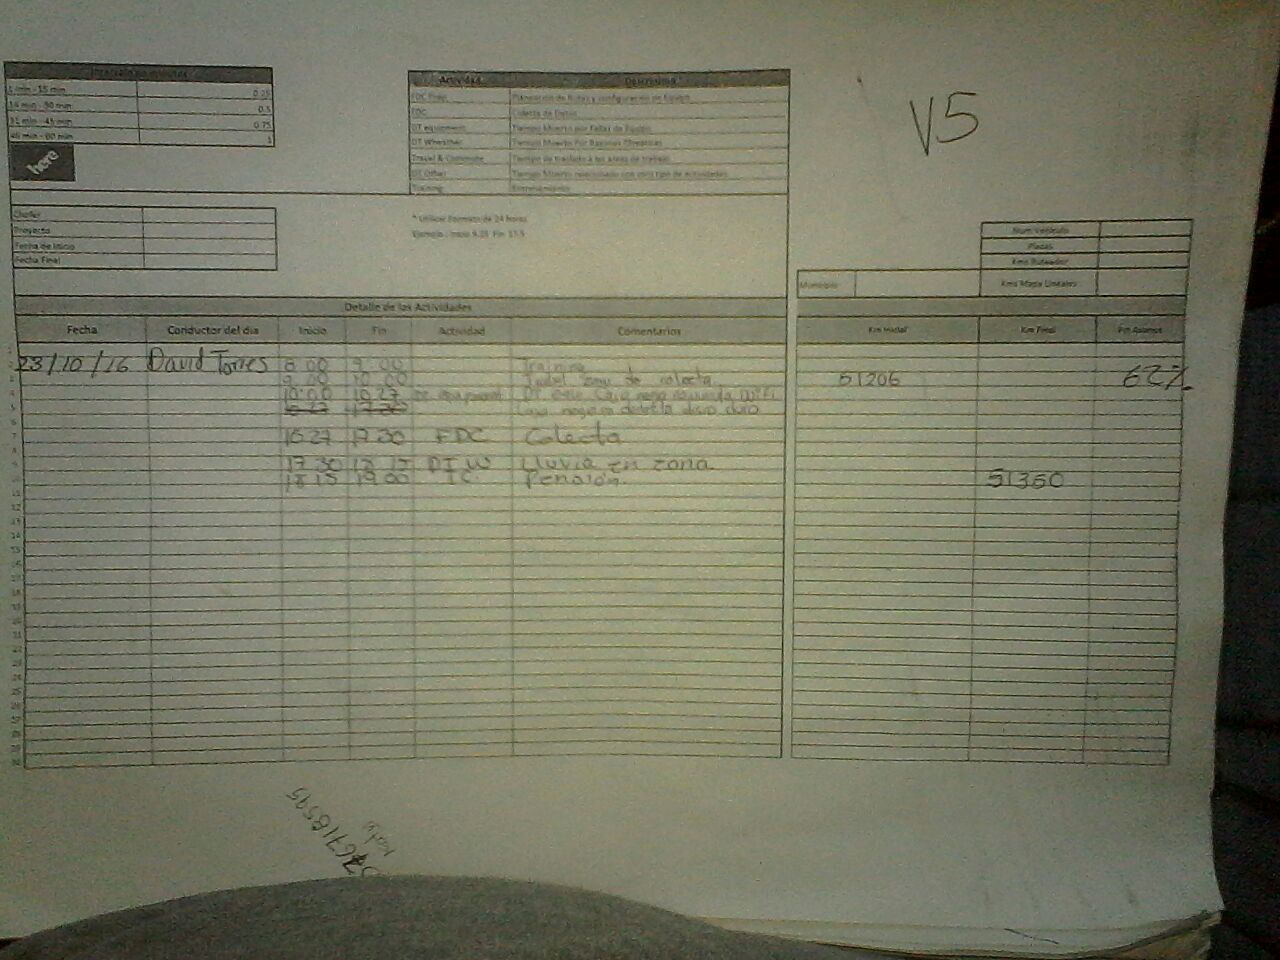 V5
Intervalo en minutos
1 min - 15 min 0.25
16 min - 30 min 0.5
31 min - 45 min 0.75
46 min - 60 min 1
here
Actividad Descripción
FDC Prep Planeación de Rutas y configuración de Equipo
FDC Colecta de Datos
DT equipment Tiempo Muerto por Fallas de Equipo
DT Wheather Tiempo Muerto Por Razones Climaticas
Travel & Commute Tiempo de traslado a las areas de trabajo
DT Other Tiempo Muerto relacionado con otro tipo de actividades
Training Entrenamiento
Chofer
Proyecto
Fecha de Inicio
Fecha Final
* Utilizar Formato de 24 horas
Ejemplo: Inicio 9.25 Fin 17.5
Num Vehiculo
Placas
Kms Ruteador
Municipio Kms Mapa Lineales
Detalle de las Actividades
Fecha Conductor del dia Inicio Fin Actividad Comentarios Km Inicial Km Final
23/10/16 David Torres 8:00 9:00 Training
9:00 10:00 zona de colecta 51206 62%
10:00 16 27 equipment DT Caja negra
Caja negra no detecta disco duro
16 27 17 30 FDC Colecta
17 30 DT W Lluvia en zona
18 15 19 00 Pensión 51350
67118595